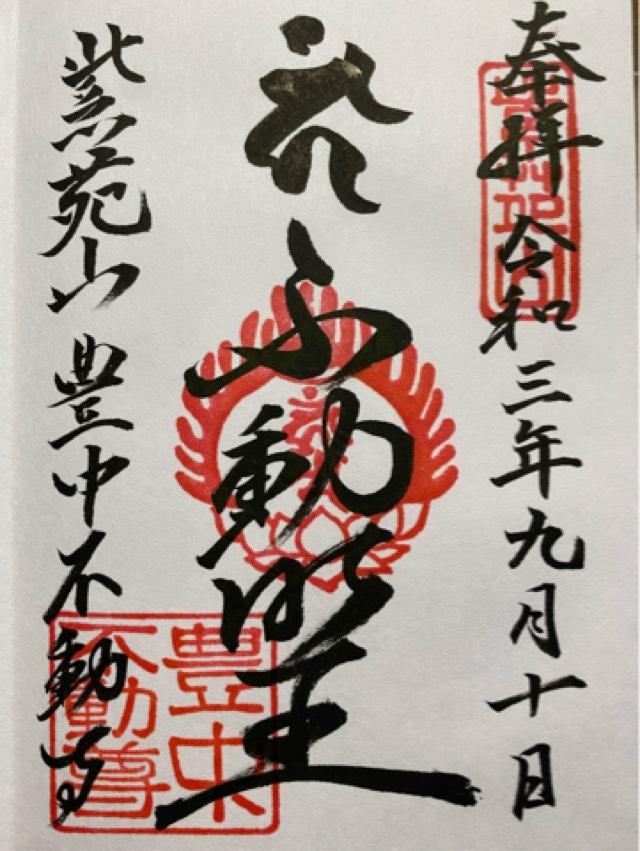 奉拝 令和三年九月十日
不動明王
紫苑山 豊中不動寺
豊中
不動尊